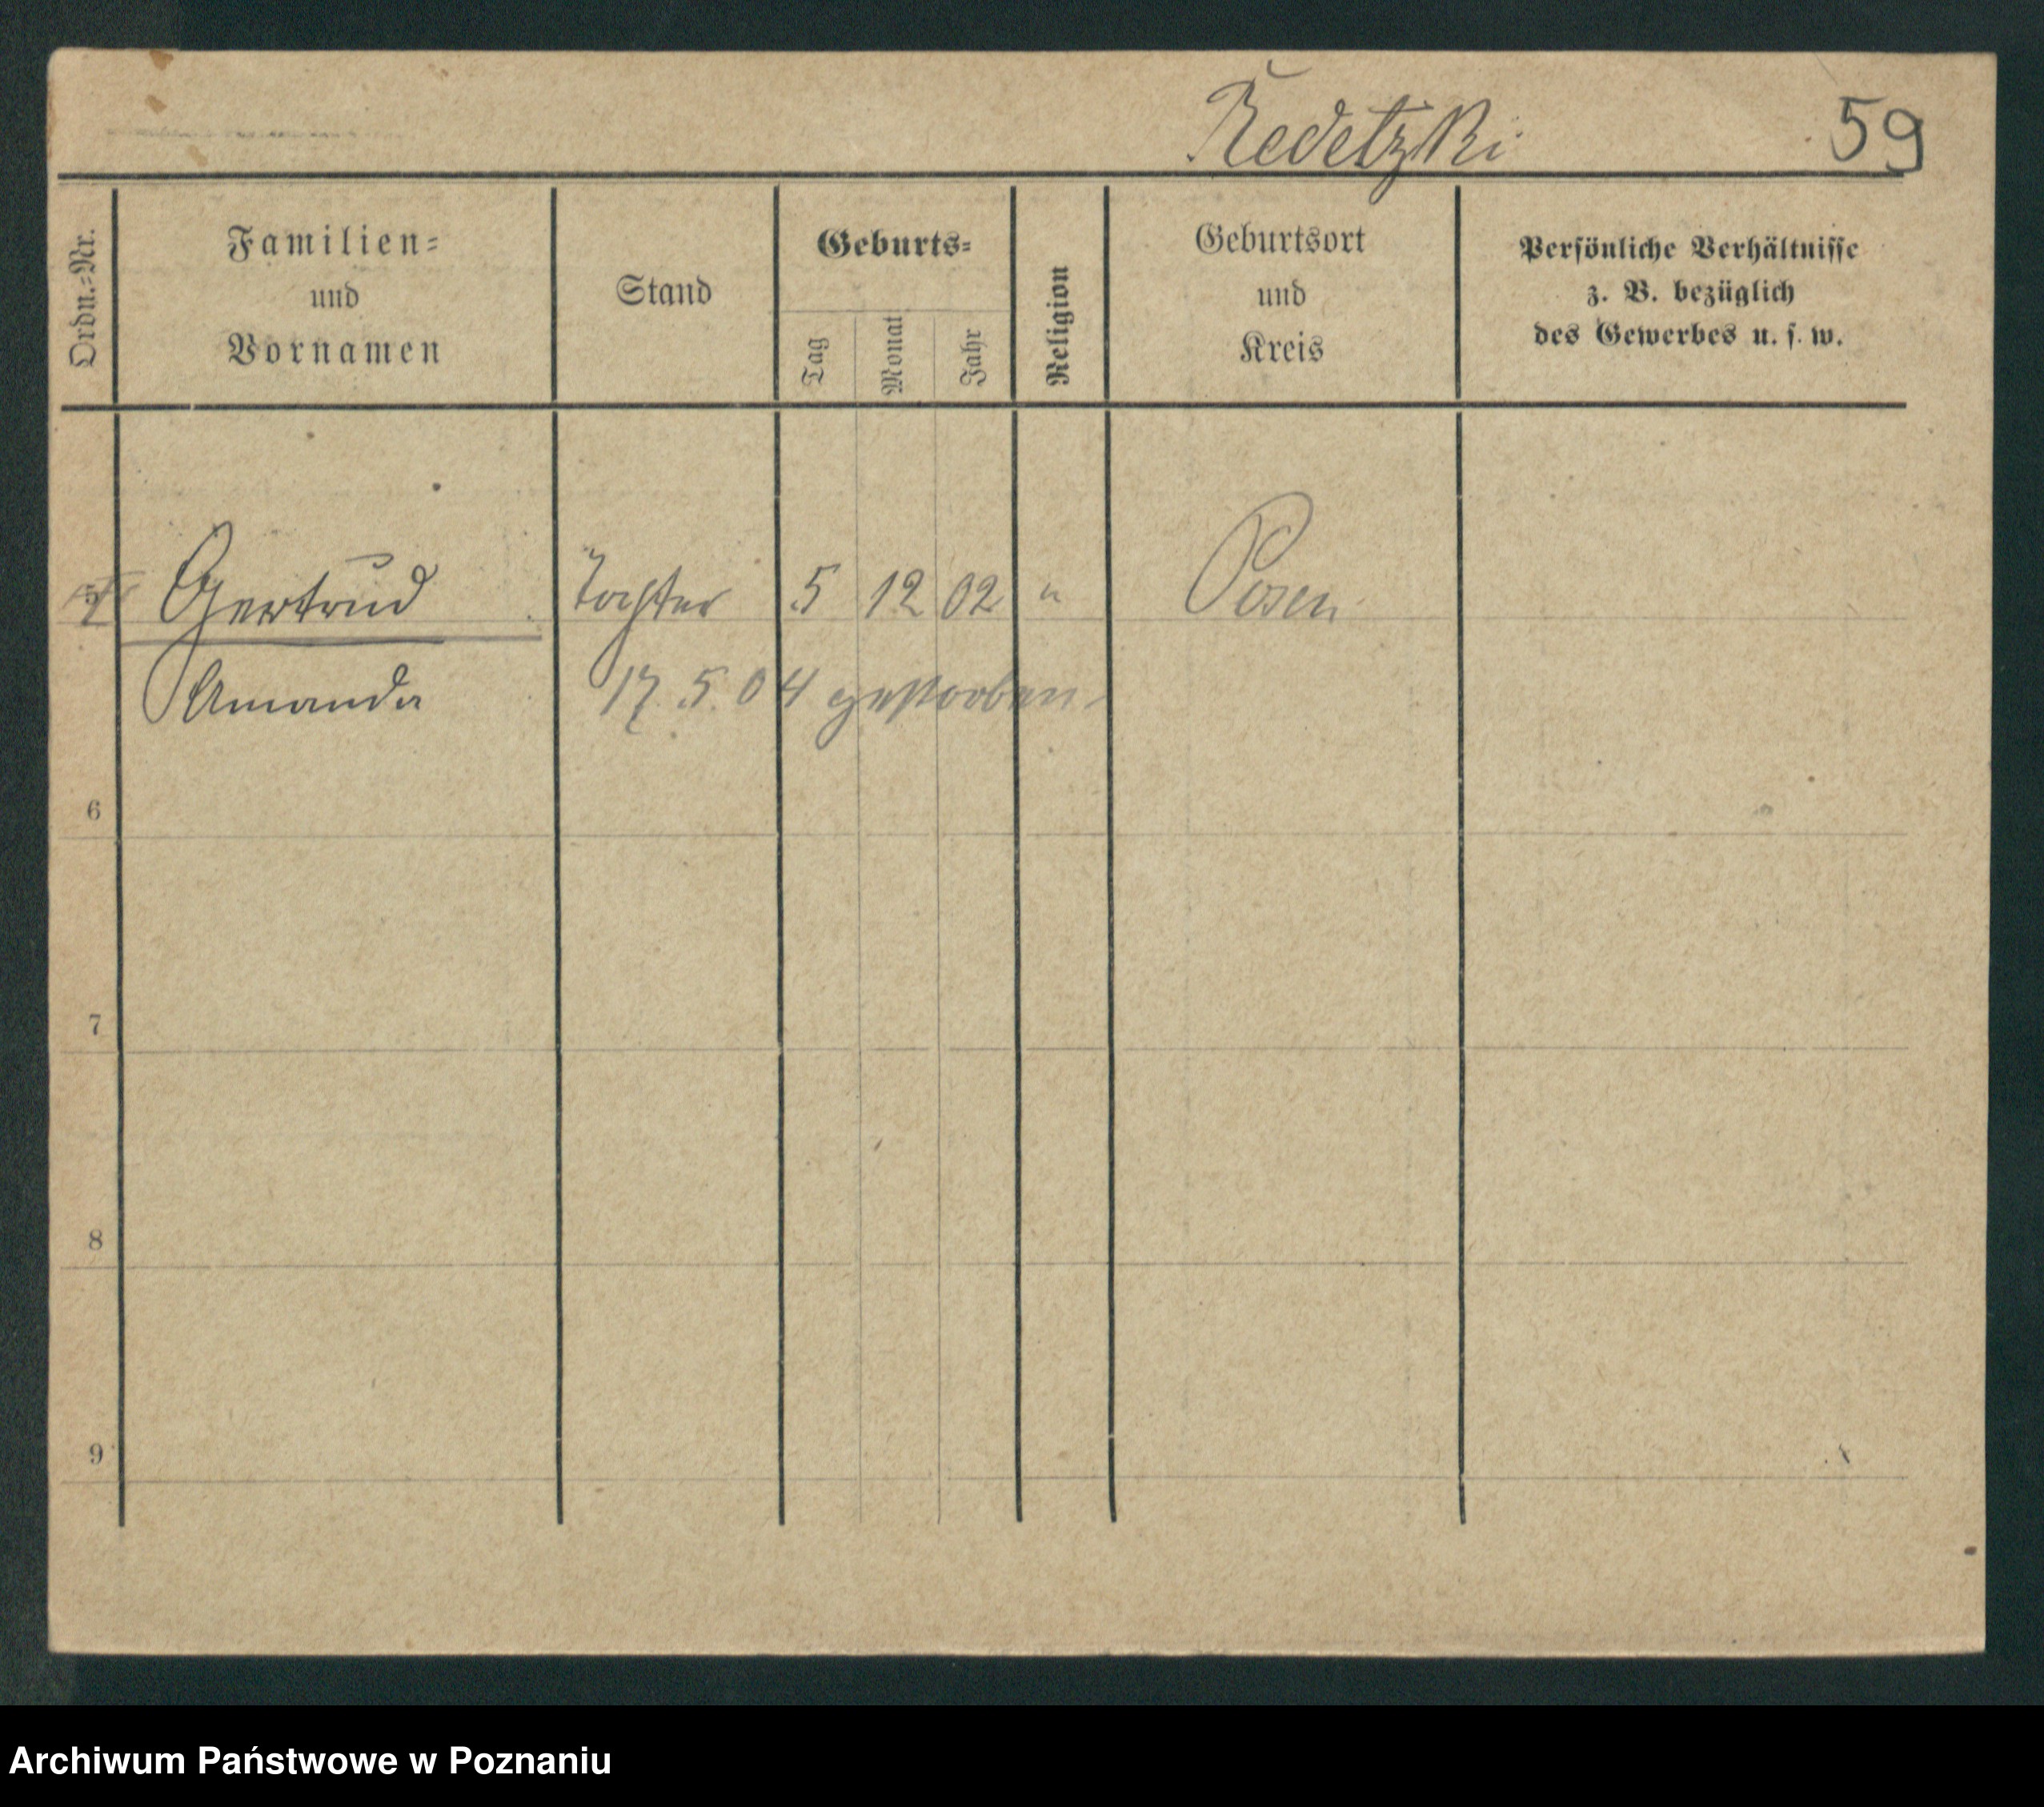 Redetzki 59
Ordn.=Nr.
Familien=
und
Vornamen
Stand
Geburts=
Tag
Monat
Jahr
Religion
Geburtsort
und
Kreis
Persönliche Verhältnisse
z. B. bezüglich
des Gewerbes u. s. w.
Gertrud Tochter 5 12 02 " Posen
Amanda 17. 5. 04 gestorben
6
7
8
9
Archiwum Państwowe w Poznaniu